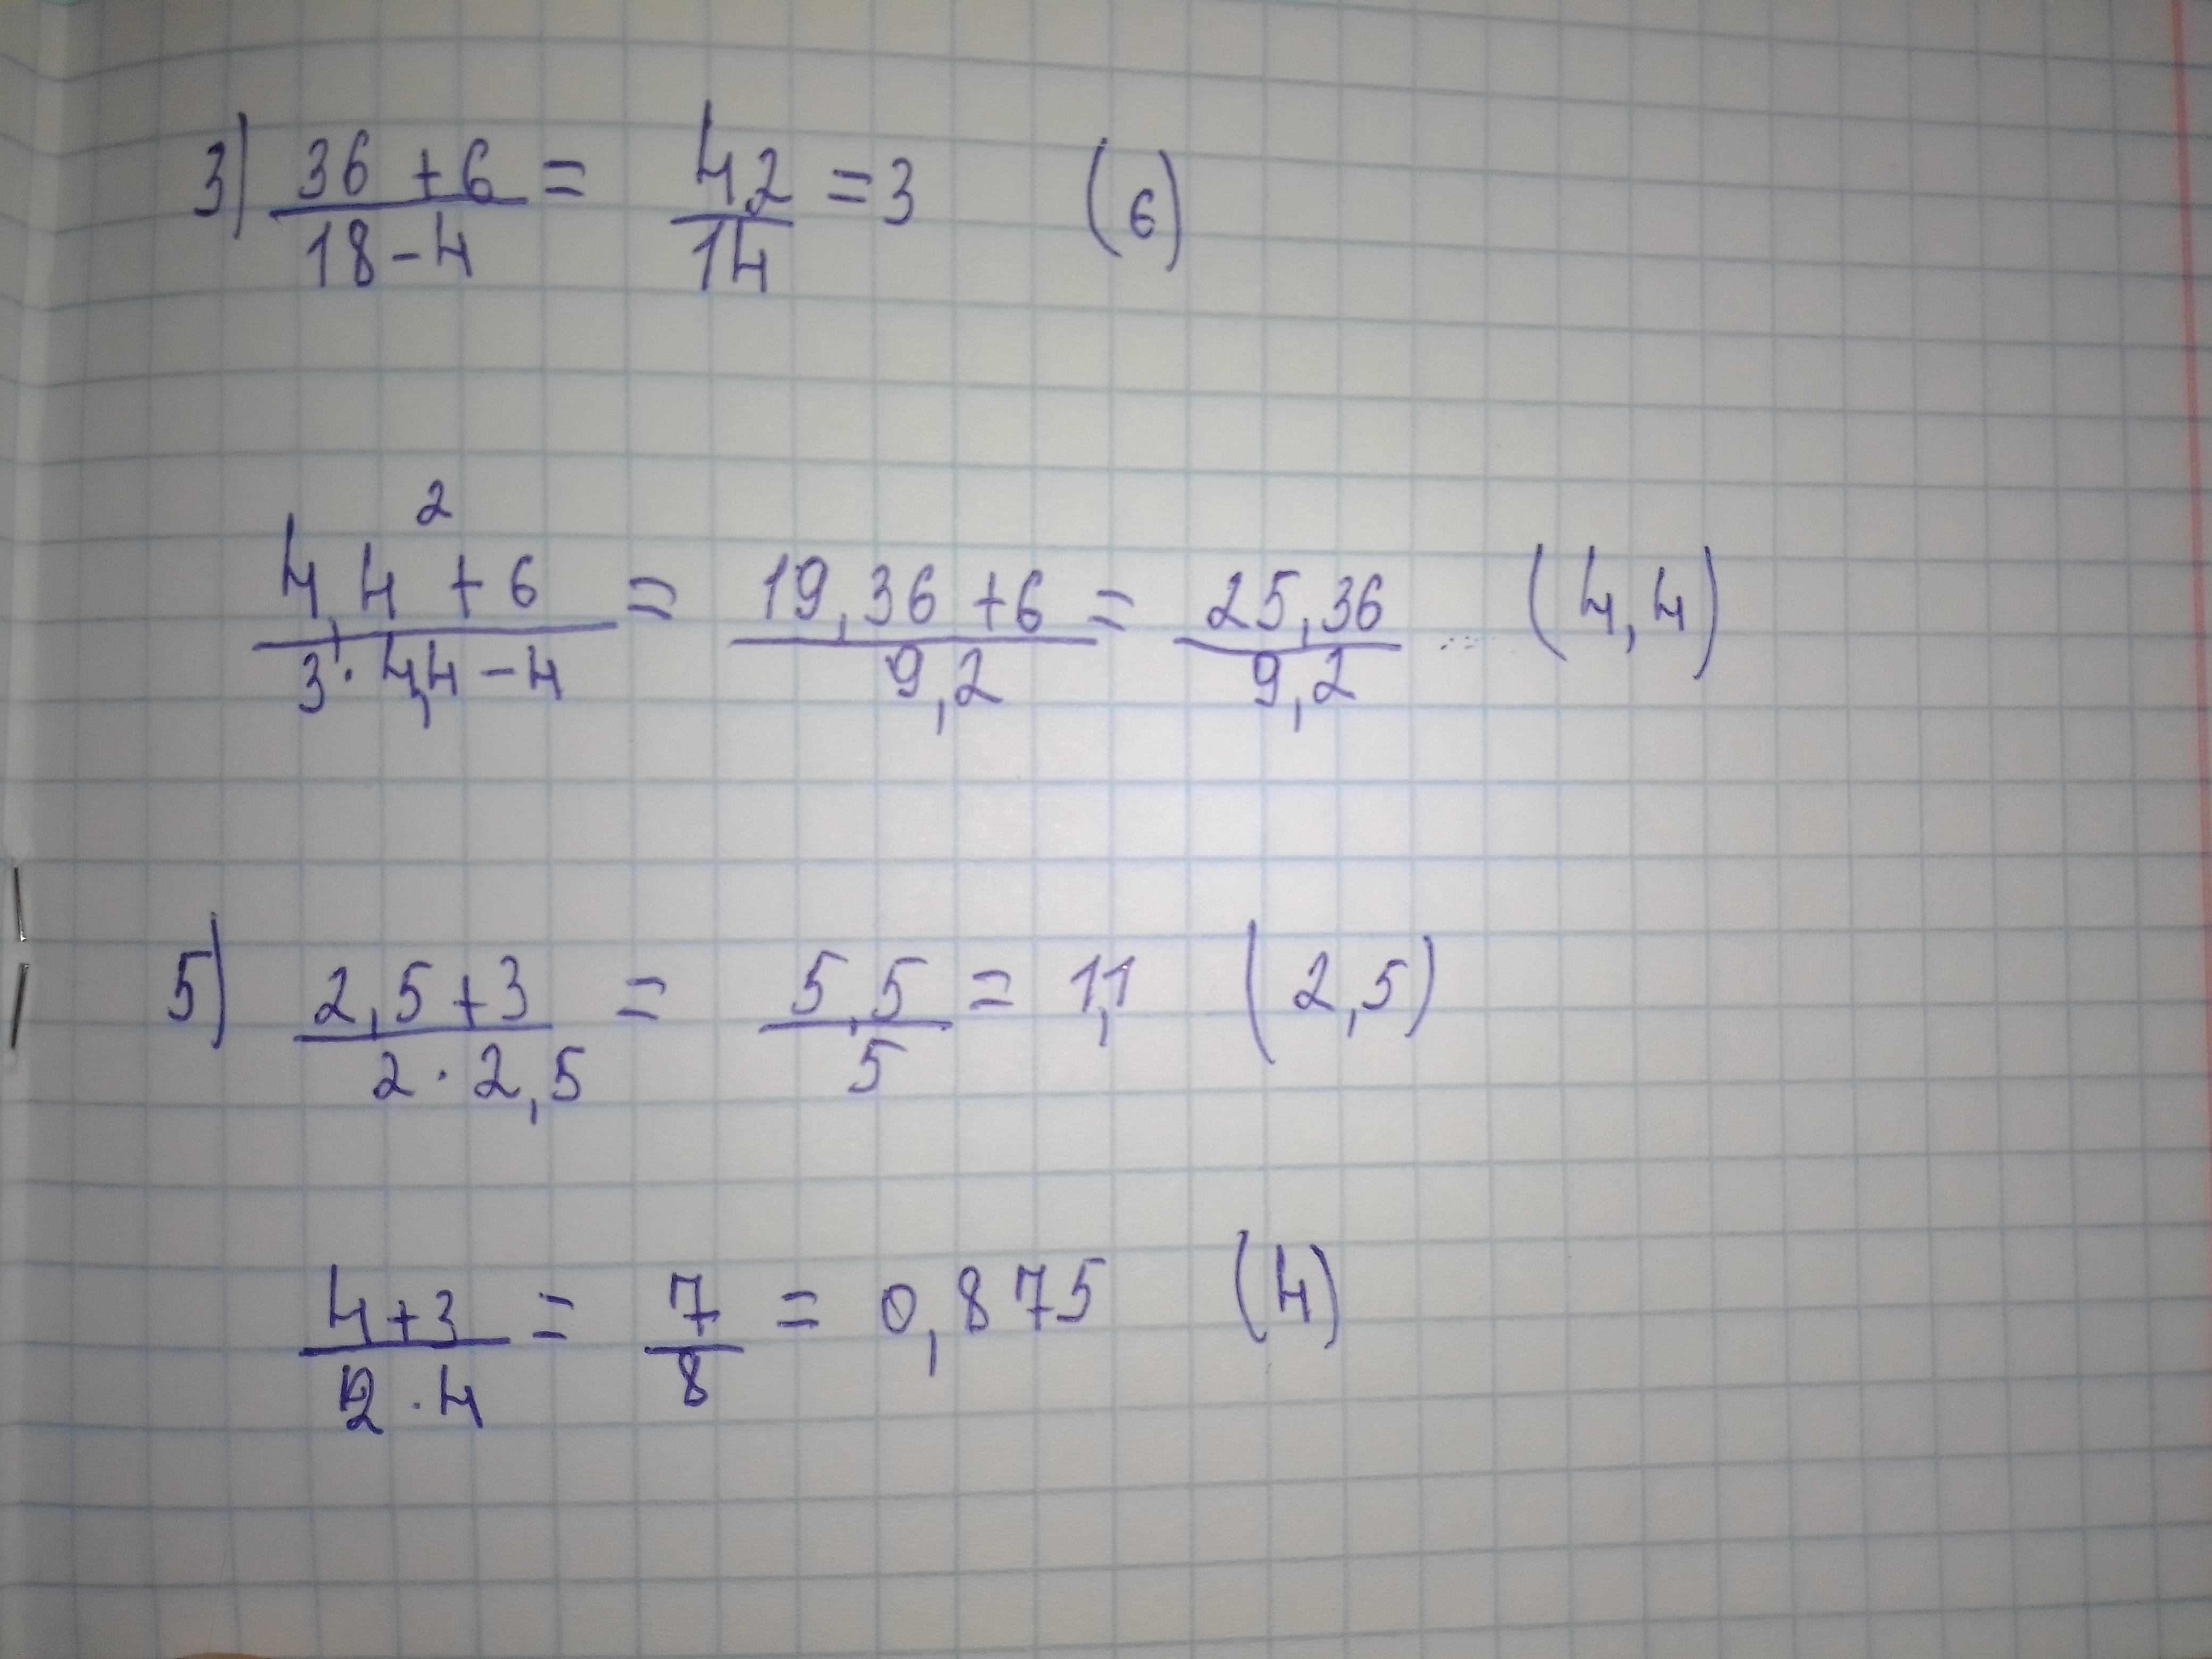 3) (36 + 6)/(18 - 4) = 42/14 = 3 (6)
(4,4² + 6)/(3 · 4,4 - 4) = (19,36 + 6)/(9,2) = 25,36/9,2 (4,4)
5) (2,5 + 3)/(2 · 2,5) = 5,5/5 = 1,1 (2,5)
(4 + 3)/(2 · 4) = 7/8 = 0,875 (4)